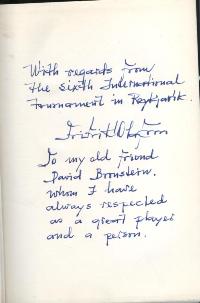 With regards from
the Sixth International
Tournament in Reykjavik.
To my old friend
David Bronstein.
whom I have
always respected
as a great player
and a person.